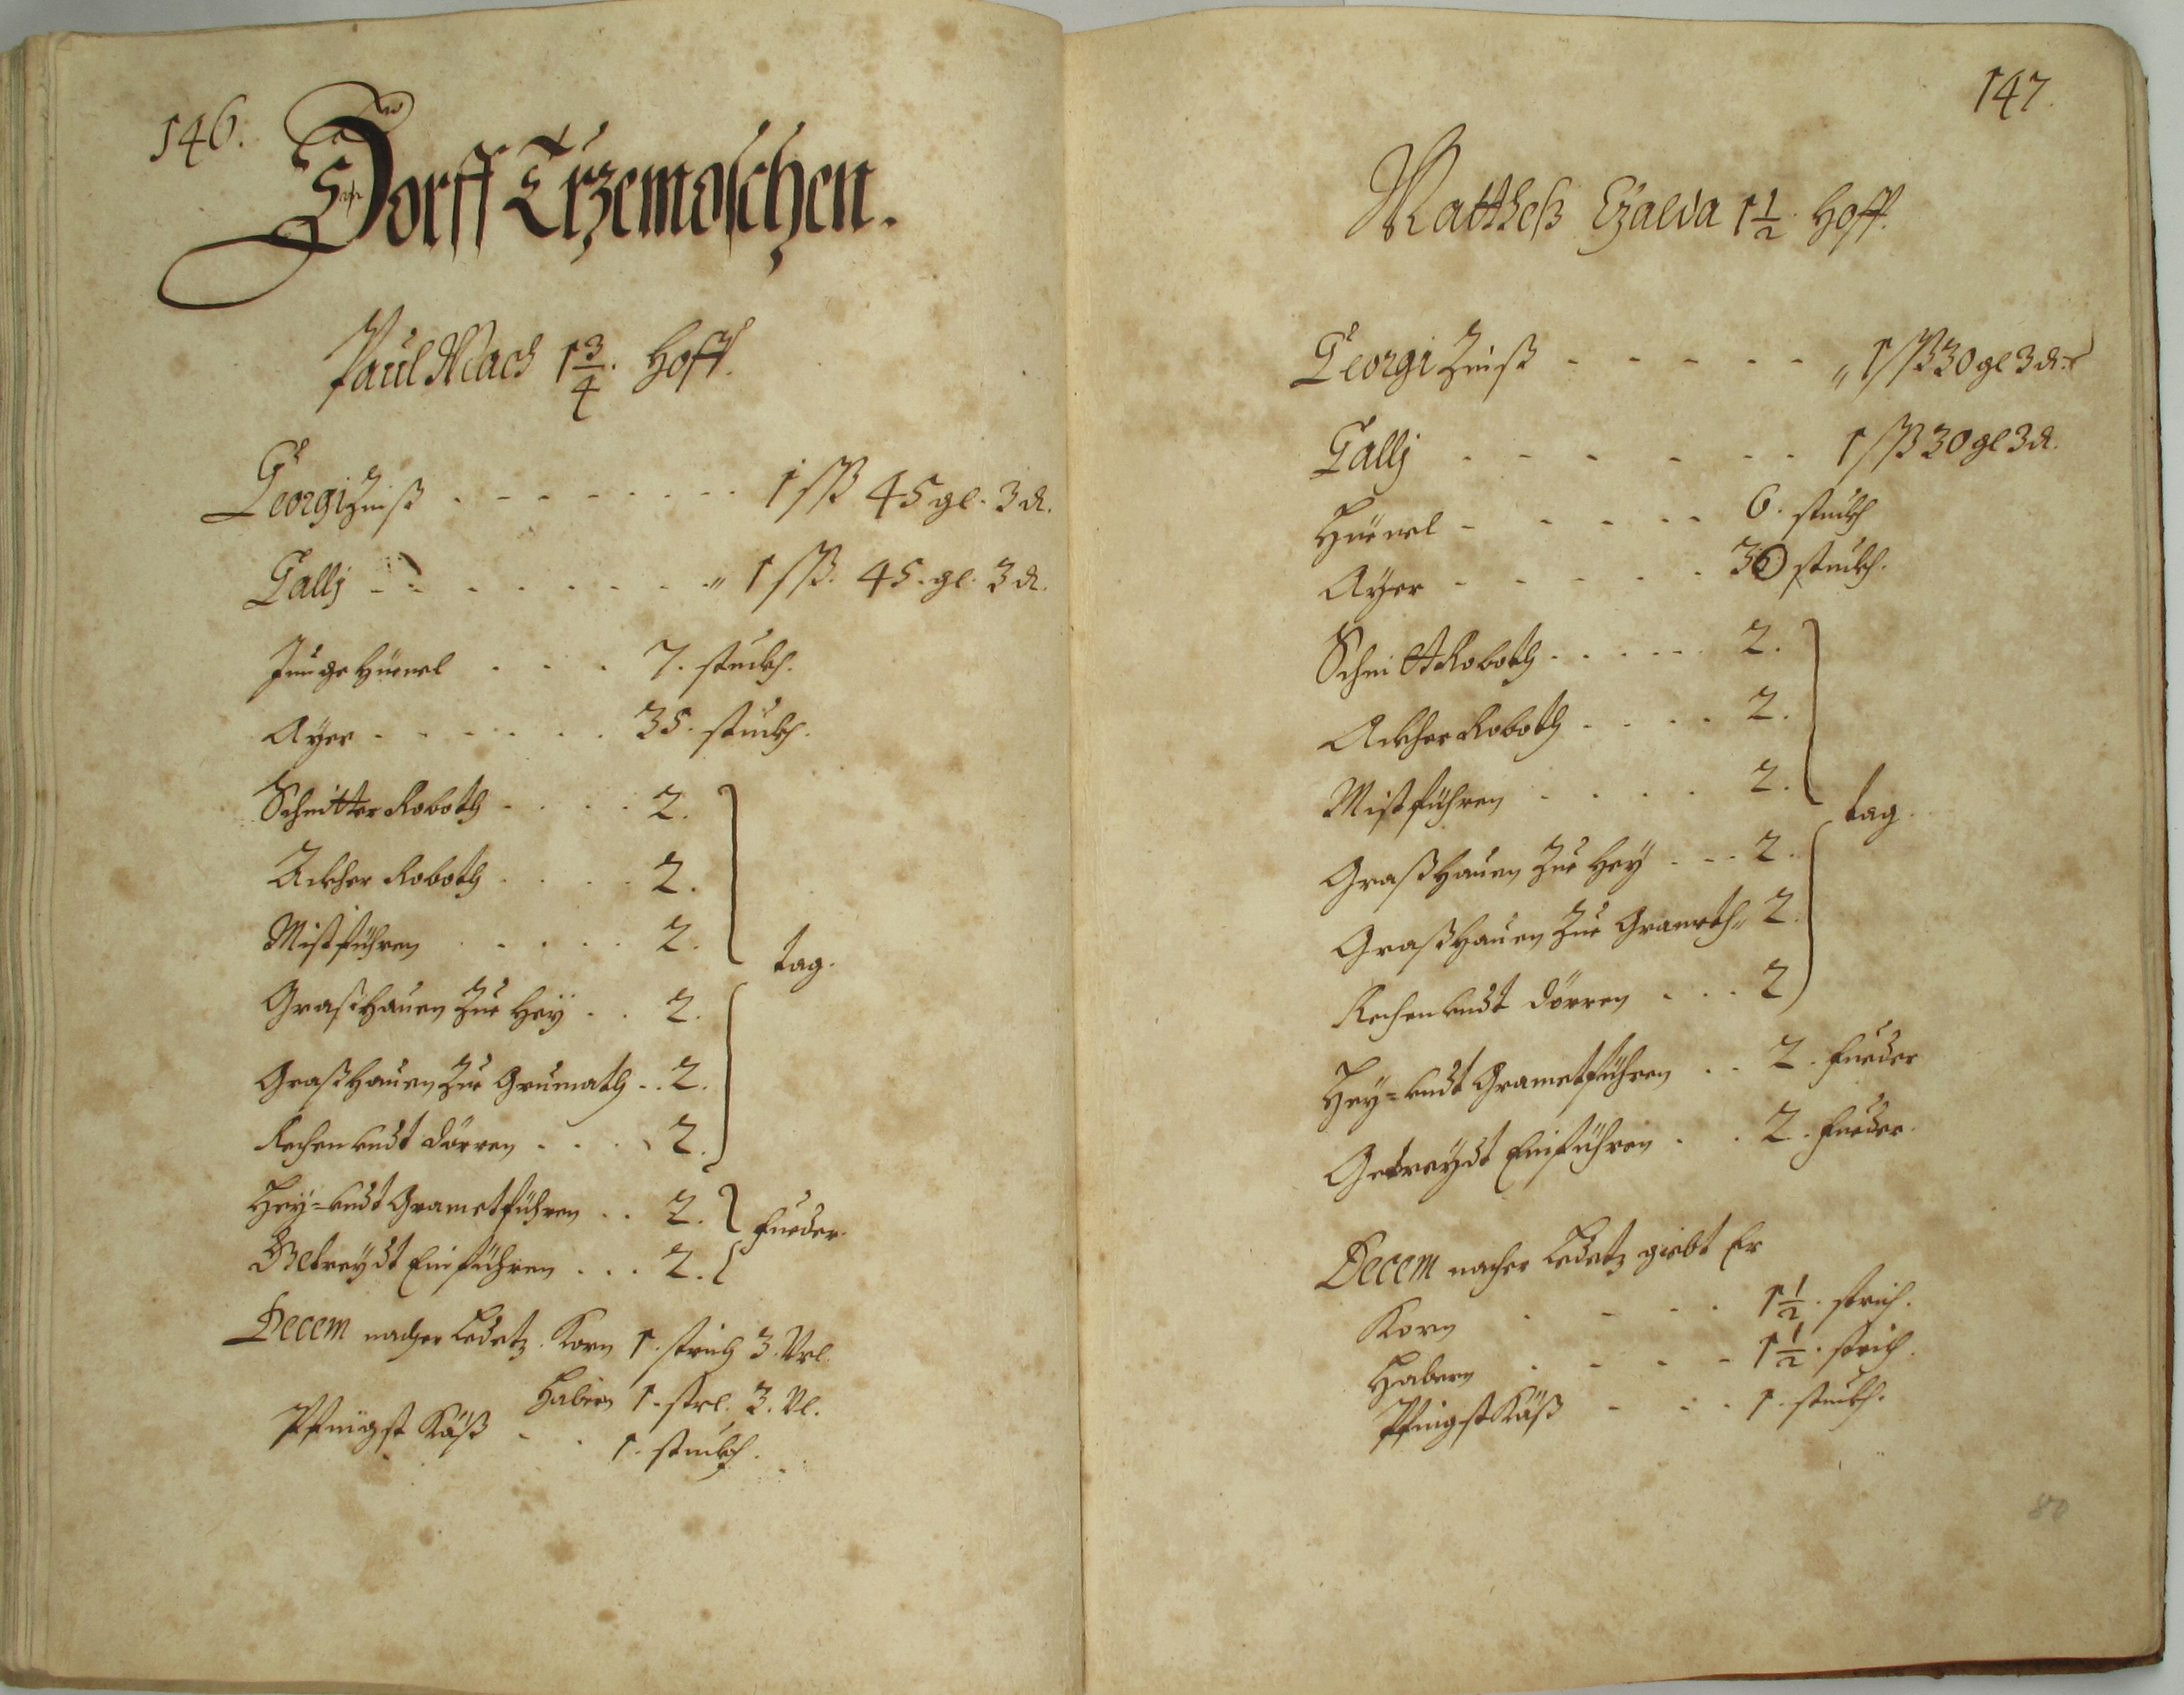 146.
Dorff Trzemoschen.
Paul Mach 1 3/4. Hoff.
Georgi Zinß - - - - - - - 1 ßß 45 gl. 3 d.
Gallj - - - - - - - - „ 1 ßß. 45. gl. 3 d.
Junge Hüenel - - - 7. stuckh.
Ayer - - - - - - 35. stuckh.
Schnitter Roboth - - - - 2.
Ackher Roboth - - - - 2.
Mistführen - - - - - 2.
tag.
Graßhauen Zue Heÿ - - 2.
Graßhauen Zue Grumath - - 2.
Rechen undt dörren - - - - 2.
Heÿ- undt Grametführen - - 2.
fueder.
Getreydt Einführen - - - 2.
Decem nacher Ledetz. Korn 1. strich 3. Vrl.
Habern 1. strl. 3. Vl.
Pfingst Käß - - 1. stuckh.
147.
Mattheß Czalda 1 1/2. Hoff.
Georgi Zinß - - - - - - „ 1 ßß 30 gl 3 d.
Gallj - - - - - - 1 ßß 30 gl 3 d.
Hüenel - - - - - 6. stuckh
Ayer - - - - - 30 stuckh.
Schnitt Roboth - - - - - 2.
Ackher Roboth - - - - 2.
Mistführen - - - - 2.
tag.
Graßhauen Zue Heÿ - - - 2.
Graßhauen Zue Grameth „ 2.
Rechen undt dörren - - - 2
Heÿ- undt Grametführen - - 2. fueder
Getreydt Einführen - - 2. fueder.
Decem nacher Ledetz giebt Er
Korn - - - - 1 1/2. strich.
Habern - - - - 1 1/2. strich.
Pfingst Käß - - - 1. stuckh.
80